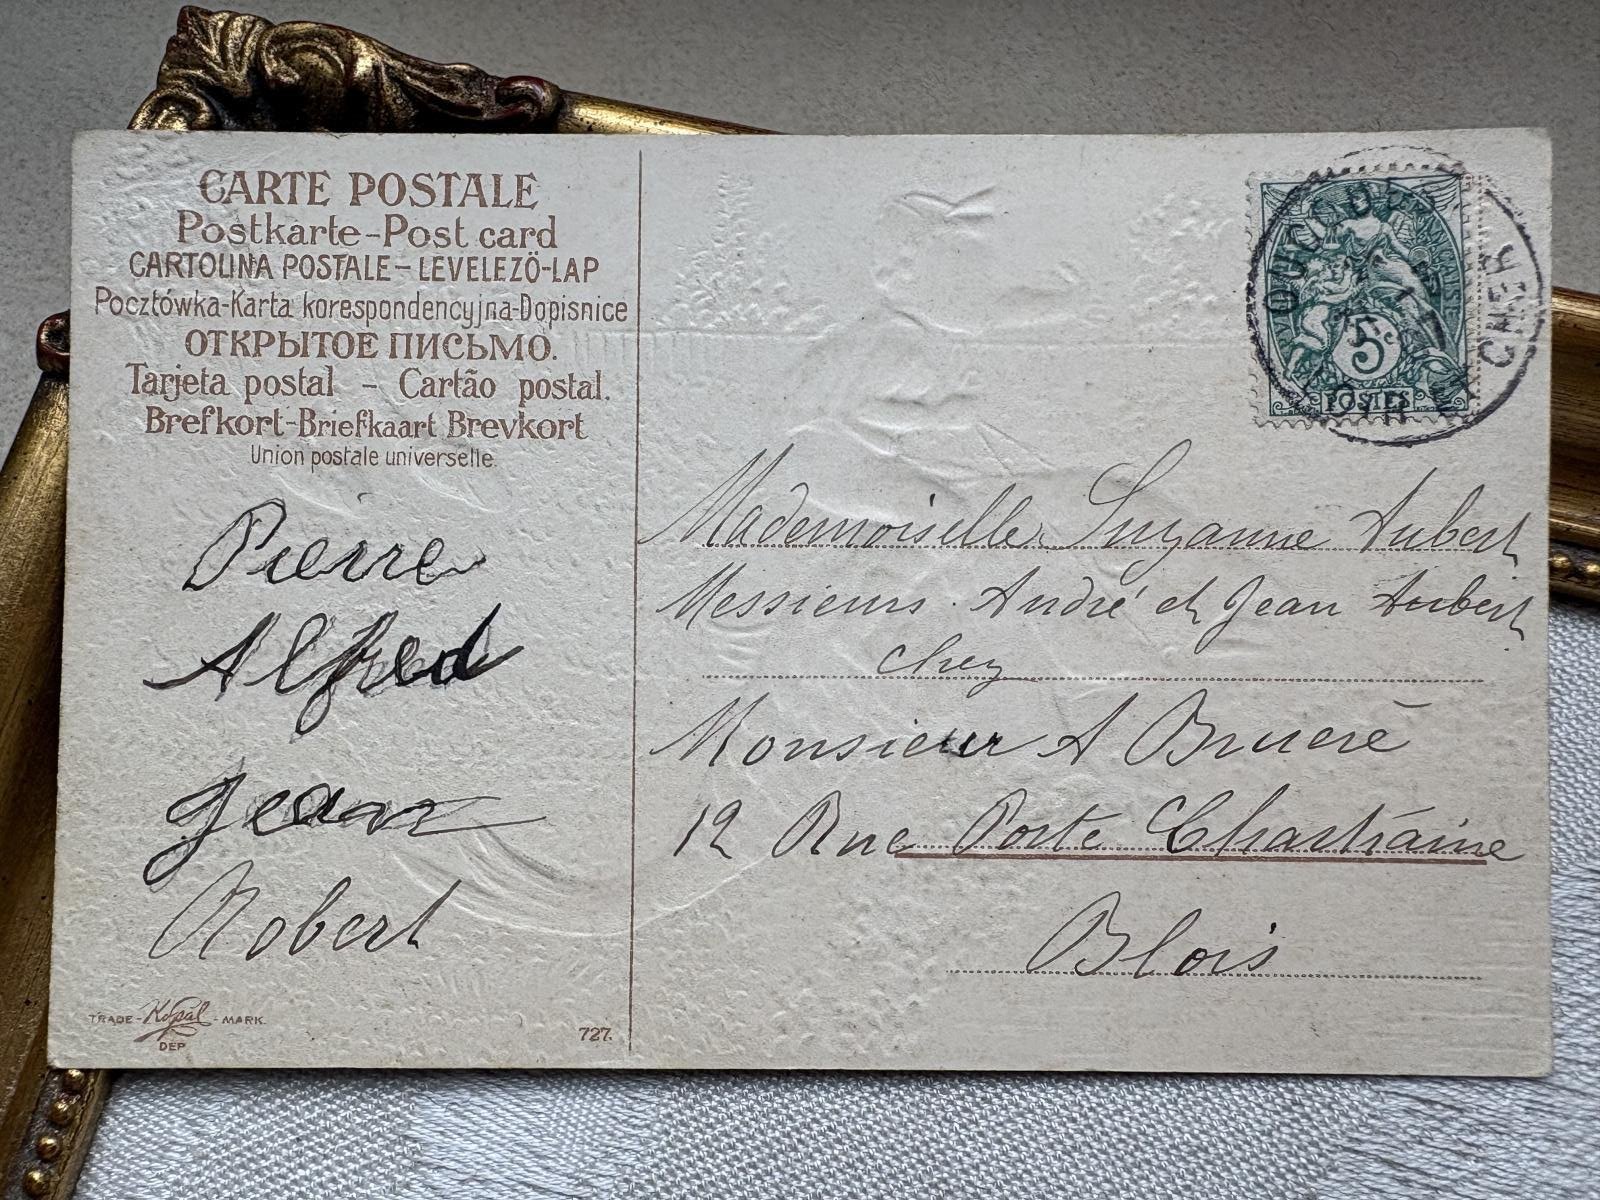 CARTE POSTALE
Postkarte-Post card
CARTOLINA POSTALE-LEVELEZÖ-LAP
Pocztówka-Karta korespondencyjna-Dopisnice
ОТКРЫТОЕ ПИСЬМО.
Tarjeta postal - Cartão postal.
Brefkort-Briefkaart Brevkort
Union postale universelle.
Pierre
Alfred
Jean
Robert
TRADE-Kopal-MARK.
DEP
727.
5c
POSTES
CHER
Mademoiselle Suzanne Aubert
Messieurs André et Jean Aubert
chez
Monsieur A Bruère
12 Rue Porte Chartraine
Blois